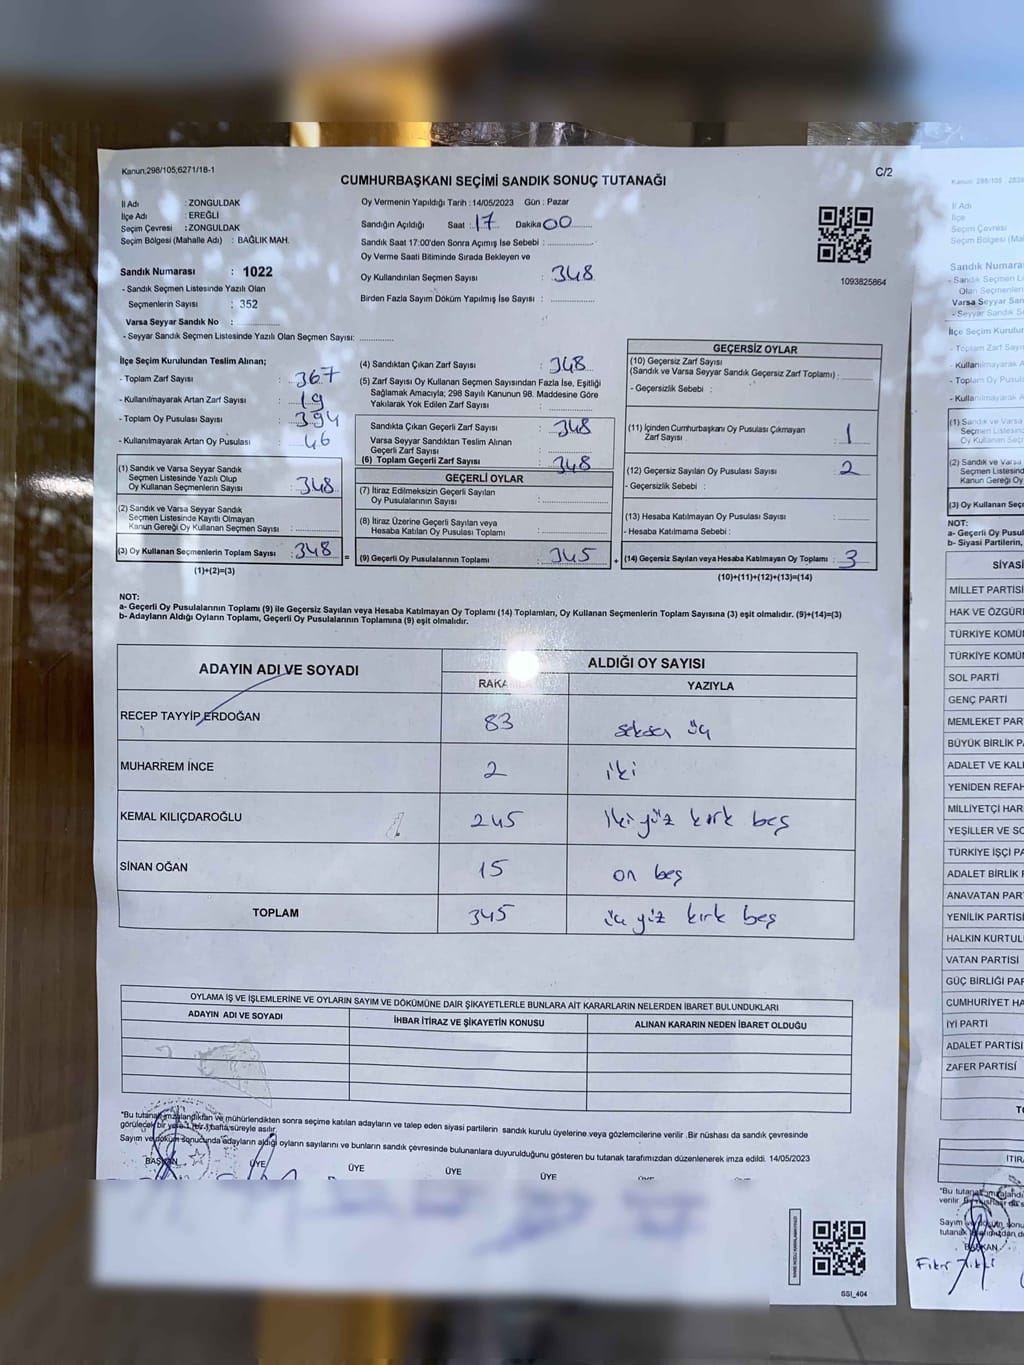 Kanun;298/105,6271/18-1
C/2
CUMHURBAŞKANI SEÇİMİ SANDIK SONUÇ TUTANAĞI
İl Adı : ZONGULDAK
İlçe Adı : EREĞLİ
Seçim Çevresi : ZONGULDAK
Seçim Bölgesi (Mahalle Adı) : BAĞLIK MAH.
Sandık Numarası : 1022
- Sandık Seçmen Listesinde Yazılı Olan
Seçmenlerin Sayısı : 352
Varsa Seyyar Sandık No : ............
- Seyyar Sandık Seçmen Listesinde Yazılı Olan Seçmen Sayısı: ............
Oy Vermenin Yapıldığı Tarih : 14/05/2023 Gün : Pazar
Sandığın Açıldığı Saat :.17 Dakika 00
Sandık Saat 17:00'den Sonra Açımış İse Sebebi : ............
Oy Verme Saati Bitiminde Sırada Bekleyen ve
Oy Kullandırılan Seçmen Sayısı : 348
Birden Fazla Sayım Döküm Yapılmış İse Sayısı : ............
1093825864
İlçe Seçim Kurulundan Teslim Alınan;
- Toplam Zarf Sayısı : 367
- Kullanılmayarak Artan Zarf Sayısı : 19
- Toplam Oy Pusulası Sayısı : 394
- Kullanılmayarak Artan Oy Pusulası : 46
(1) Sandık ve Varsa Seyyar Sandık
Seçmen Listesinde Yazılı Olup
Oy Kullanan Seçmenlerin Sayısı : 348
(2) Sandık ve Varsa Seyyar Sandık
Seçmen Listesinde Kayıtlı Olmayan
Kanun Gereği Oy Kullanan Seçmen Sayısı : ............
(3) Oy Kullanan Seçmenlerin Toplam Sayısı : 348 =
(1)+(2)=(3)
(4) Sandıktan Çıkan Zarf Sayısı : 348
(5) Zarf Sayısı Oy Kullanan Seçmen Sayısından Fazla İse, Eşitliği
Sağlamak Amacıyla; 298 Sayılı Kanunun 98. Maddesine Göre
Yakılarak Yok Edilen Zarf Sayısı : ............
Sandıkta Çıkan Geçerli Zarf Sayısı : 348
Varsa Seyyar Sandıktan Teslim Alınan
Geçerli Zarf Sayısı : ............
(6) Toplam Geçerli Zarf Sayısı : 348
GEÇERLİ OYLAR
(7) İtiraz Edilmeksizin Geçerli Sayılan
Oy Pusulalarının Sayısı : ............
(8) İtiraz Üzerine Geçerli Sayılan veya
Hesaba Katılan Oy Pusulaları Toplamı : ............
(9) Geçerli Oy Pusulalarının Toplamı : 345 +
GEÇERSİZ OYLAR
(10) Geçersiz Zarf Sayısı
(Sandık ve Varsa Seyyar Sandık Geçersiz Zarf Toplamı) : ............
- Geçersizlik Sebebi :
(11) İçinden Cumhurbaşkanı Oy Pusulası Çıkmayan
Zarf Sayısı : 1
(12) Geçersiz Sayılan Oy Pusulası Sayısı : 2
- Geçersizlik Sebebi :
(13) Hesaba Katılmayan Oy Pusulası Sayısı
- Hesaba Katılmama Sebebi :
(14) Geçersiz Sayılan veya Hesaba Katılmayan Oy Toplamı : 3
(10)+(11)+(12)+(13)=(14)
NOT:
a- Geçerli Oy Pusulalarının Toplamı (9) ile Geçersiz Sayılan veya Hesaba Katılmayan Oy Toplamı (14) Toplamları, Oy Kullanan Seçmenlerin Toplam Sayısına (3) eşit olmalıdır. (9)+(14)=(3)
b- Adayların Aldığı Oyların Toplamı, Geçerli Oy Pusulalarının Toplamına (9) eşit olmalıdır.
ADAYIN ADI VE SOYADI ALDIĞI OY SAYISI
YAZIYLA
RECEP TAYYİP ERDOĞAN 83 seksen üç
MUHARREM İNCE 2 iki
KEMAL KILIÇDAROĞLU 245 İki yüz kırk beş
SİNAN OĞAN 15 on beş
TOPLAM 345 üç yüz kırk beş
OYLAMA İŞ VE İŞLEMLERİNE VE OYLARIN SAYIM VE DÖKÜMÜNE DAİR ŞİKAYETLERLE BUNLARA AİT KARARLARIN NELERDEN İBARET BULUNDUKLARI
ADAYIN ADI VE SOYADI İHBAR İTİRAZ VE ŞİKAYETİN KONUSU ALINAN KARARIN NEDEN İBARET OLDUĞU
"Bu tutanak imzalandıktan ve mühürlendikten sonra seçime katılan adayların ve talep eden siyasi partilerin sandık kurulu üyelerine veya gözlemcilerine verilir .Bir nüshası da sandık çevresinde
görülecek bir yere 1 (bir) hafta süreyle asılır.
Sayım ve döküm sonucunda adayların aldığı oyların sayılarını ve bunların sandık çevresinde bulunanlara duyurulduğunu gösteren bu tutanak tarafımızdan düzenlenerek imza edildi. 14/05/2023
BAŞKAN ÜYE ÜYE ÜYE ÜYE
SSI_404
İl Adı
İlçe
Seçim Çevresi
Seçim Bölgesi
Sandık Numarası
NOT:
MİLLET PARTİSİ
HAK VE ÖZGÜR
TÜRKİYE KOMÜ
TÜRKİYE KOMÜN
SOL PARTİ
GENÇ PARTİ
MEMLEKET PAR
BÜYÜK BİRLİK P
ADALET VE KAL
YENİDEN REFAH
MİLLİYETÇİ HAR
YEŞİLLER VE SO
TÜRKİYE İŞÇİ PA
ADALET BİRLİK
ANAVATAN PAR
YENİLİK PARTİSİ
HALKIN KURTUL
VATAN PARTİSİ
GÜÇ BİRLİĞİ PAR
CUMHURİYET HA
İYİ PARTİ
ADALET PARTİSİ
ZAFER PARTİSİ